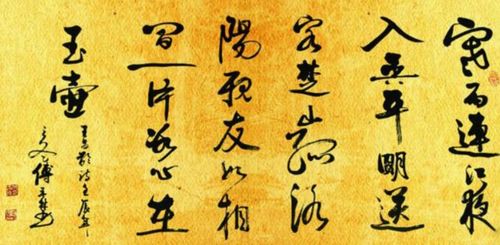 寒雨連江夜
入吴平明送
客楚山孤洛
陽親友如相
問一片冰心在
玉壺
王昌齡詩壬辰年
傅